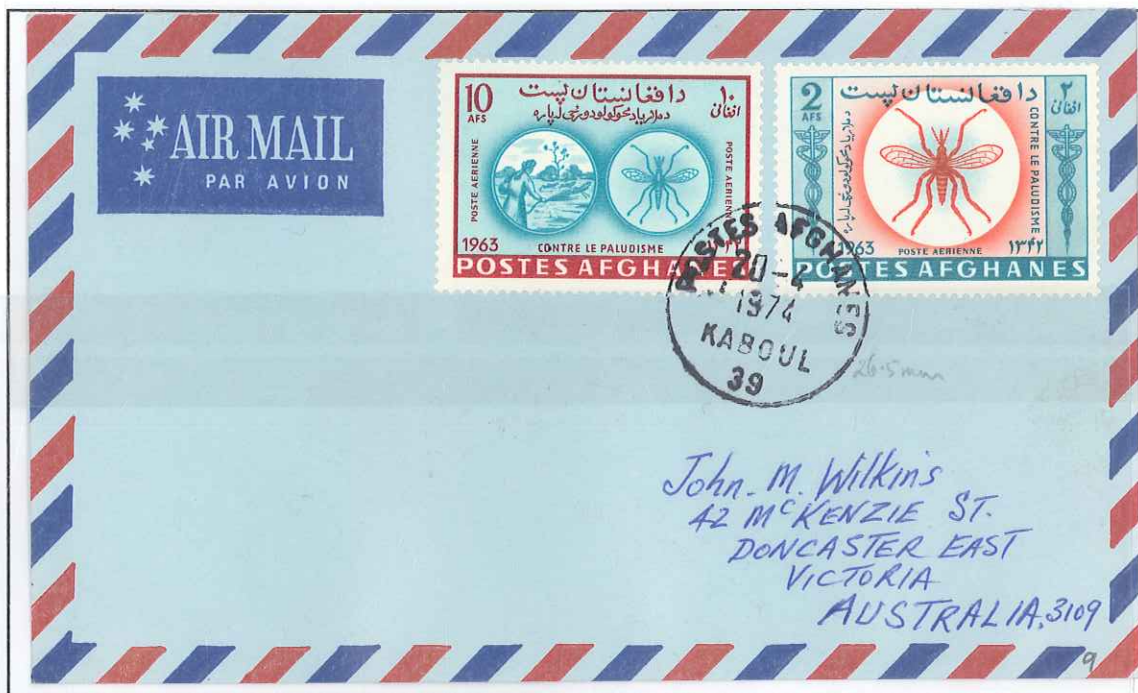 AIR MAIL
PAR AVION
10
AFS
د افغانستان پست
۱۰
افغانی
POSTE AERIENNE
POSTE AERIENNE
1963
CONTRE LE PALUDISME
POSTES AFGHANES
2
AFS
د افغانستان پست
۲
افغانی
CONTRE LE PALUDISME
1963
POSTE AERIENNE
۱۳۴۲
POSTES AFGHANES
POSTES AFGHANES
20-4
1974
KABOUL
39
26.5mm
John. M. Wilkins
42 McKENZIE ST.
DONCASTER EAST
VICTORIA
AUSTRALIA.3109
9